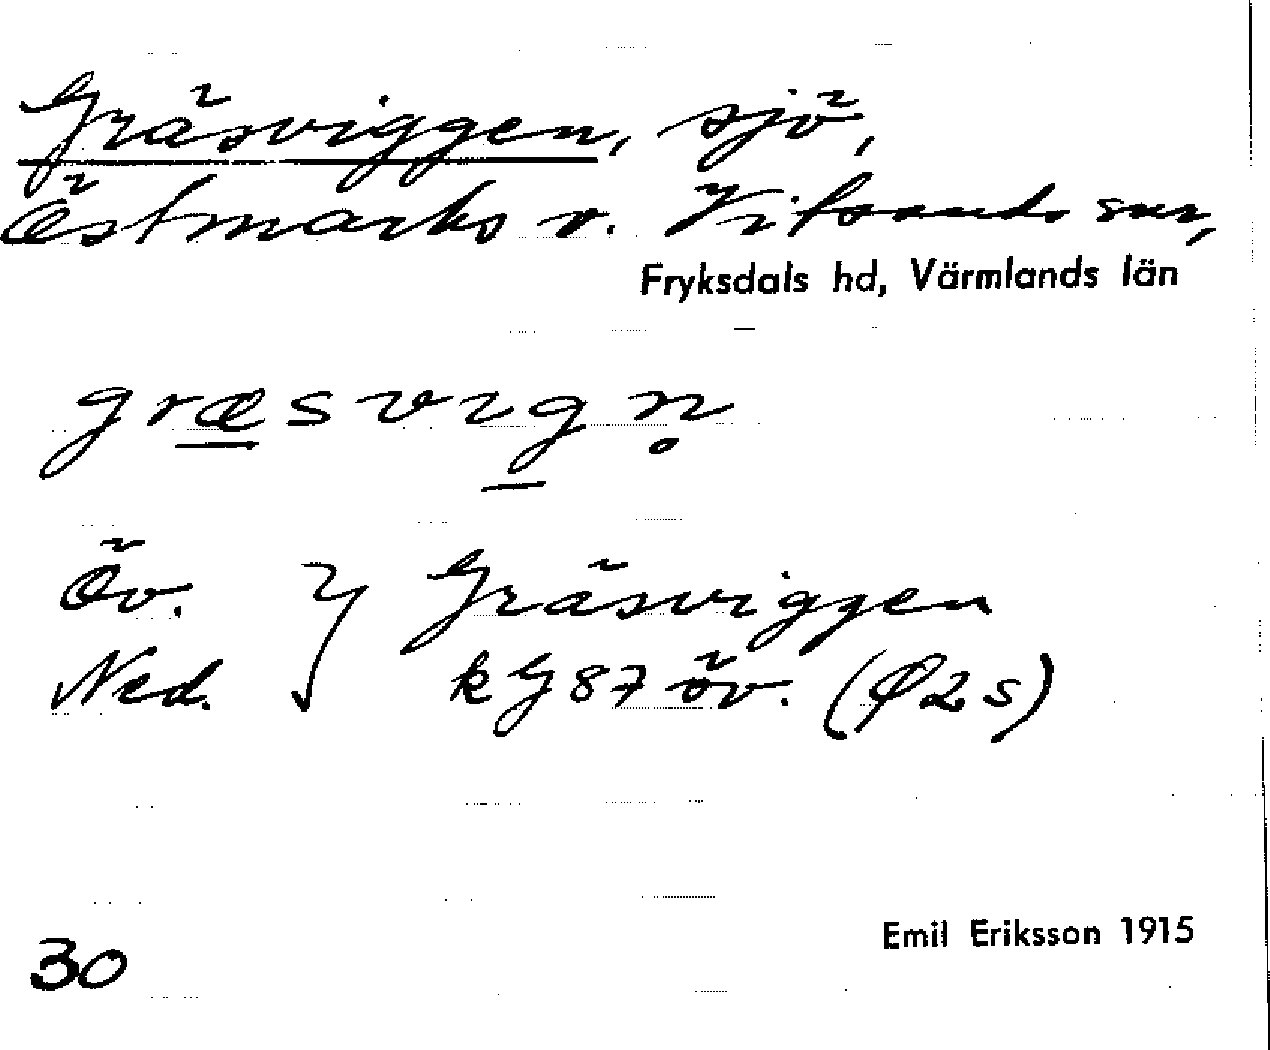 Gräsviggen, sjö,
Östmarks o. Vitsands snr,
Fryksdals hd, Värmlands län
græsvıgn̥
Öv. } Gräsviggen
Ned. kG87 öv. (Ø2s)
30
Emil Eriksson 1915